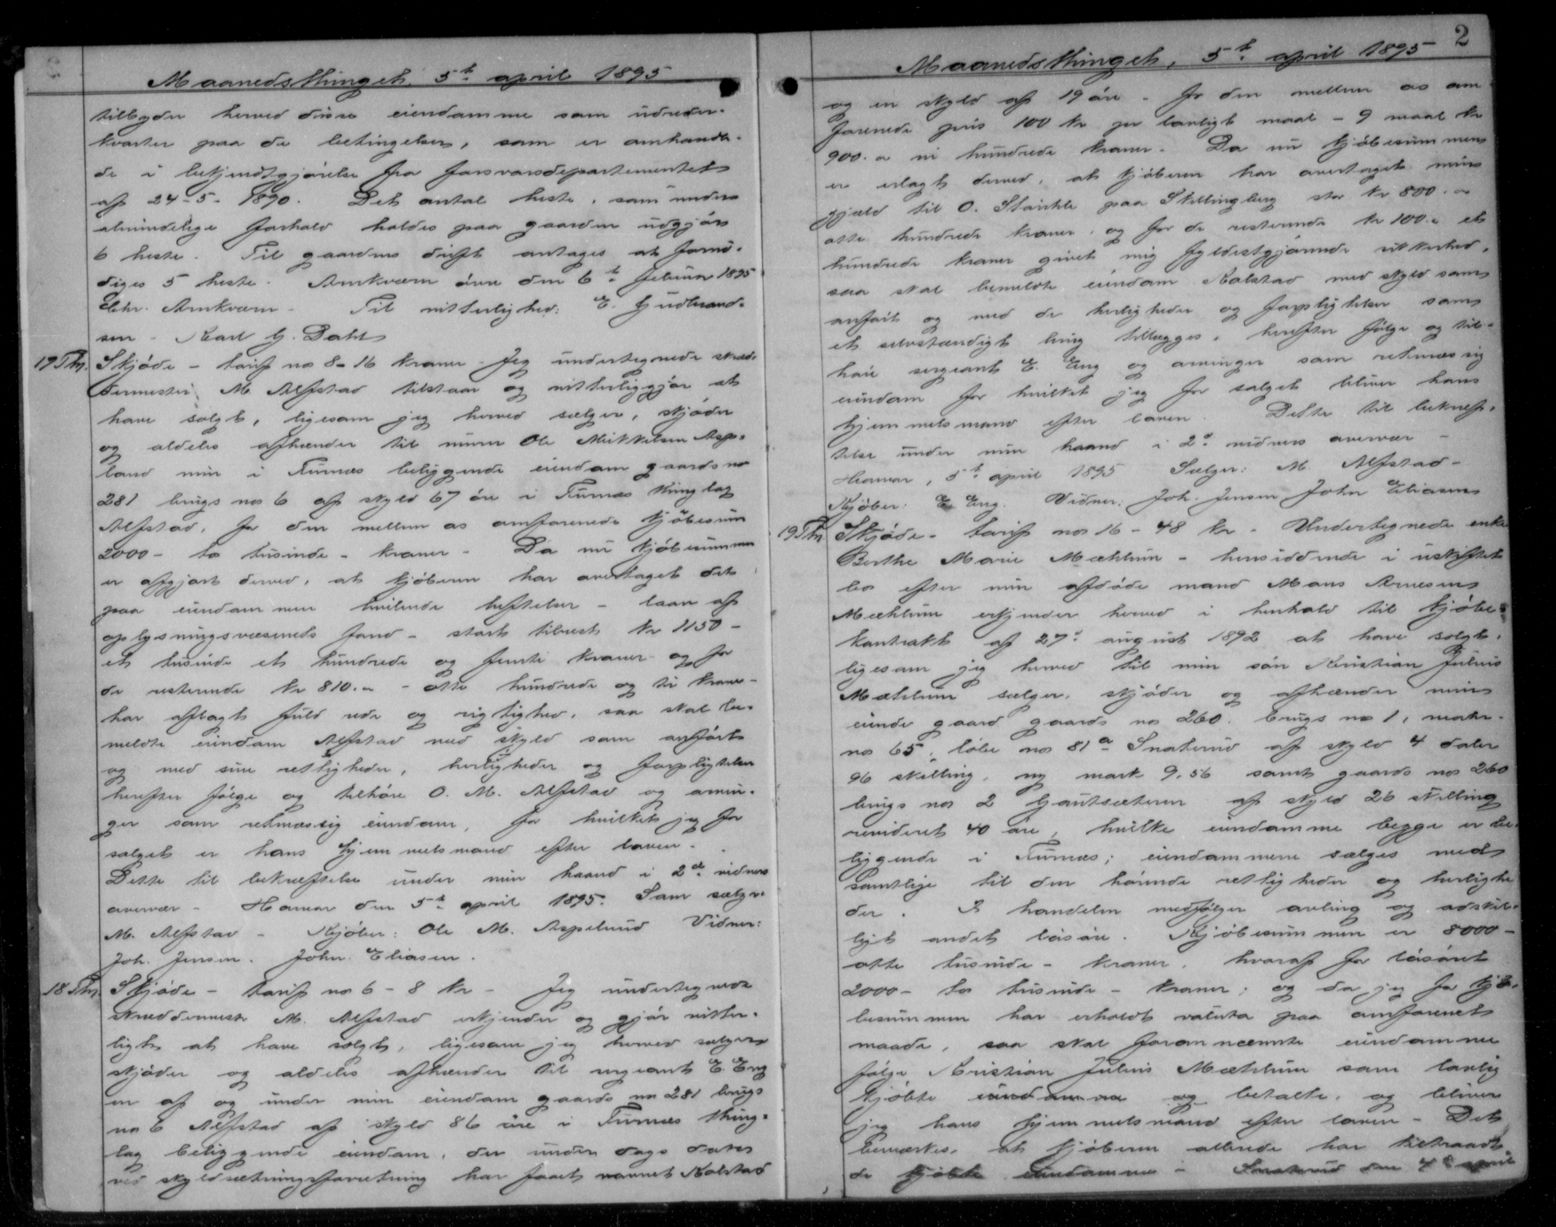 Maanedsthinget, 5t april 1895
tilbyder herved disse eiendomme som udreder-
kvarter paa de betingelser, som er omhandle-
de i bekjendtgjørelse fra forsvarsdepartementet
af 24-5-1890. Det antal heste, som under
almindelige forhold holdes paa gaarden udgjør
6 heste. Til gaardens drift antages at fornø-
diges 5 heste. Arnkværn øvre den 6t februar 1895
Chr. Arnkværn - Til vitterlighed: E. Gudbrand-
sen - Karl G. Dahl
17 Thr. Skjøde - tarif no 8 - 16 kroner - Jeg undertegnede skræd-
dermester M. Alfstad tilstaar og vitterliggjør at
have solgt, ligesom jeg herved sælger, skjøder
og aldeles afhænder til Ole Mikkelsen Aspe-
lund min i Furnes beliggende eiendom gaards no
281 brugs no 6 af skyld 67 øre i Furnes thinglag
Alfstad, for den mellem os omforenede kjøbesum
2000 - to tusinde - kroner - Da nu kjøbesummen
er afgjort derved, at kjøberen har overtaget det
paa eiendommen hvilende heftelser - laan af
oplysningsvæsenets fond - stort tilrest kr 1150 -
et tusinde et hundrede og femti kroner og for
de resterende kr 810.- - otte hundrede og ti kroner -
har aflagt fuld rede og rigtighed, saa skal be-
meldte eiendom Alfstad med skyld som anført
og med sine rettigheder, herligheder og forpligtelser
herefter følge og tilhøre O. M. Alfstad og arvin-
ger som retmæssig eiendom, for hvilket jeg for
salget er hans hjemmelsmand efter loven.
Dette til bekræftelse under min haand i 2de vidners
overvær - Hamar den 5t april 1895. Som sælger
M. Alfstad - Kjøber: Ole M. Aspelund Vidner:
Joh. Jensen. John Eliasen.
18 Thr. Skjøde - tarif no 6 - 8 kr - Jeg undertegnede
skræddermester M. Alfstad erkjender og gjør vitter-
ligt at have solgt, ligesom jeg herved sælger
skjøder og aldeles afhænder til sergeant E. Eng
en af og under min eiendom gaards no 281 brugs
no 6 Alfstad af skyld 86 øre i Furnes thing-
lag beliggende eiendom, der under dags dato
ved skyldsætningsforretning har faaet navnet Kalstad
2
Maanedsthinget, 5t april 1895
og en skyld af 19 øre - for den mellem os om-
forenede pris 100 kr pr lovligt maal - 9 maal kr
900.- ni hundrede kroner. Da nu kjøbesummen
er erlagt derved, at kjøberen har overtaget min
gjæld til O. paa Skillingberg stor kr 800.-
otte hundrede kroner, og for de resterende kr 100.- et
hundrede kroner givet mig fyldestgjørende sikkerhed,
saa skal bemeldte eiendom Kalstad med skyld som
anført og med de herligheder og forpligtelser som
et selvstændigt brug tillægges, herefter følge og til-
høre sergeant E. Eng og arvinger som retmæssig
eiendom for hvilket jeg for salget bliver hans
hjemmelsmand efter loven Dette til bekræf-
telse under min haand i 2de vidners overvær -
Hamar, 5t april 1895 Sælger: M. Alfstad -
Kjøber: E Eng. Vidner: Joh. Jensen John Eliasen
19 Thr. Skjøde - tarif no 16 - 48 kr - Undertegnede enke
Berthe Marie Mæhlum - hensiddende i uskiftet
bo efter min afdøde mand Mons Arnesen
Mæhlum erkjender herved i henhold til kjøbe-
kontrakt af 27de august 1892 at have solgt,
ligesom jeg herved til min søn Kristian Julius
Mæhlum sælger, skjøder og afhænder min
eiende gaard gaards no 260, brugs no 1, matr.
no 65, løbe no 81a Snaterud af skyld 4 daler
96 skilling, ny mark 9.56 samt gaards no 260
brugs no 2 af skyld 26 skilling
revideret 40 øre, hvilke eiendomme begge er be-
liggende i Furnes; eiendommene sælges med
samtlige til den hørende rettigheder og herlighe-
der. I handelen medfølger avling og adskil-
ligt andet løsøre. Kjøbesummen er 8000 -
otte tusinde - kroner, hvoraf for løsøret
2000 - to tusinde - kroner; og da jeg for kjø-
besummen har erholdt valuta paa omforenet
maade, saa skal forannævnte eiendomme
følge Kristian Julius Mæhlum som lovlig
kjøbte eiendomme og betalte, og bliver
jeg hans hjemmelsmand efter loven - Det
bemærkes, at kjøberen allerede har tiltraadt
de kjøbte eiendomme - Snaterud den 4de april